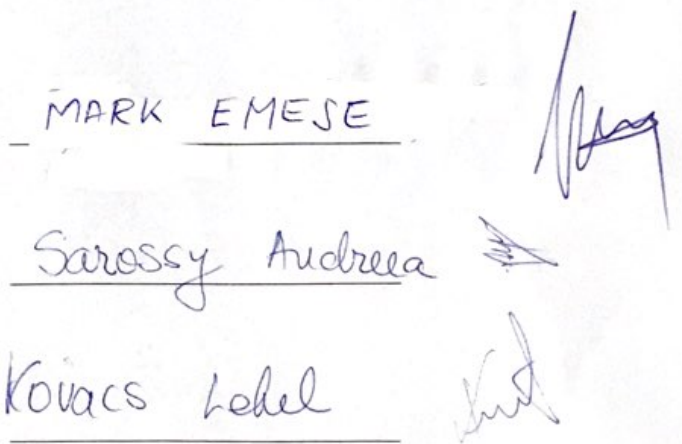 MARK EMESE
Sarossy Andreea
Kovacs Lehel